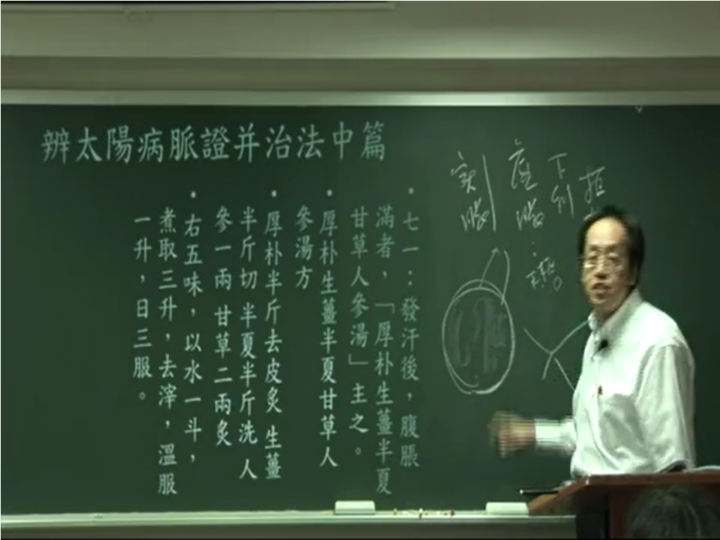 辨太陽病脈證并治法中篇
• 七一：發汗後，腹脹
滿者，「厚朴生薑半夏
甘草人參湯」主之。
• 厚朴生薑半夏甘草人
參湯方
• 厚朴半斤去皮炙 生薑
半斤切 半夏半斤洗 人
參一兩 甘草二兩炙
• 右五味，以水一斗，
煮取三升，去滓，溫服
一升，日三服。